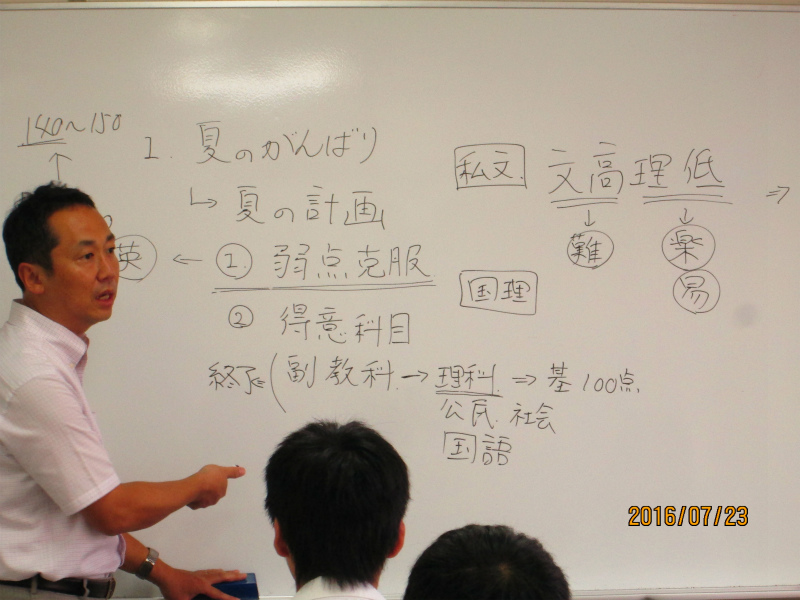 140〜150
↑
1. 夏のがんばり
↳夏の計画
英 ← ① 弱点克服
② 得意科目
終了⇐(副教科.→理科.⇒基100点
公民.社会
国語
私文. 文高理低 ⇒
↓ ↓
難 楽
易
国理
2016/07/23